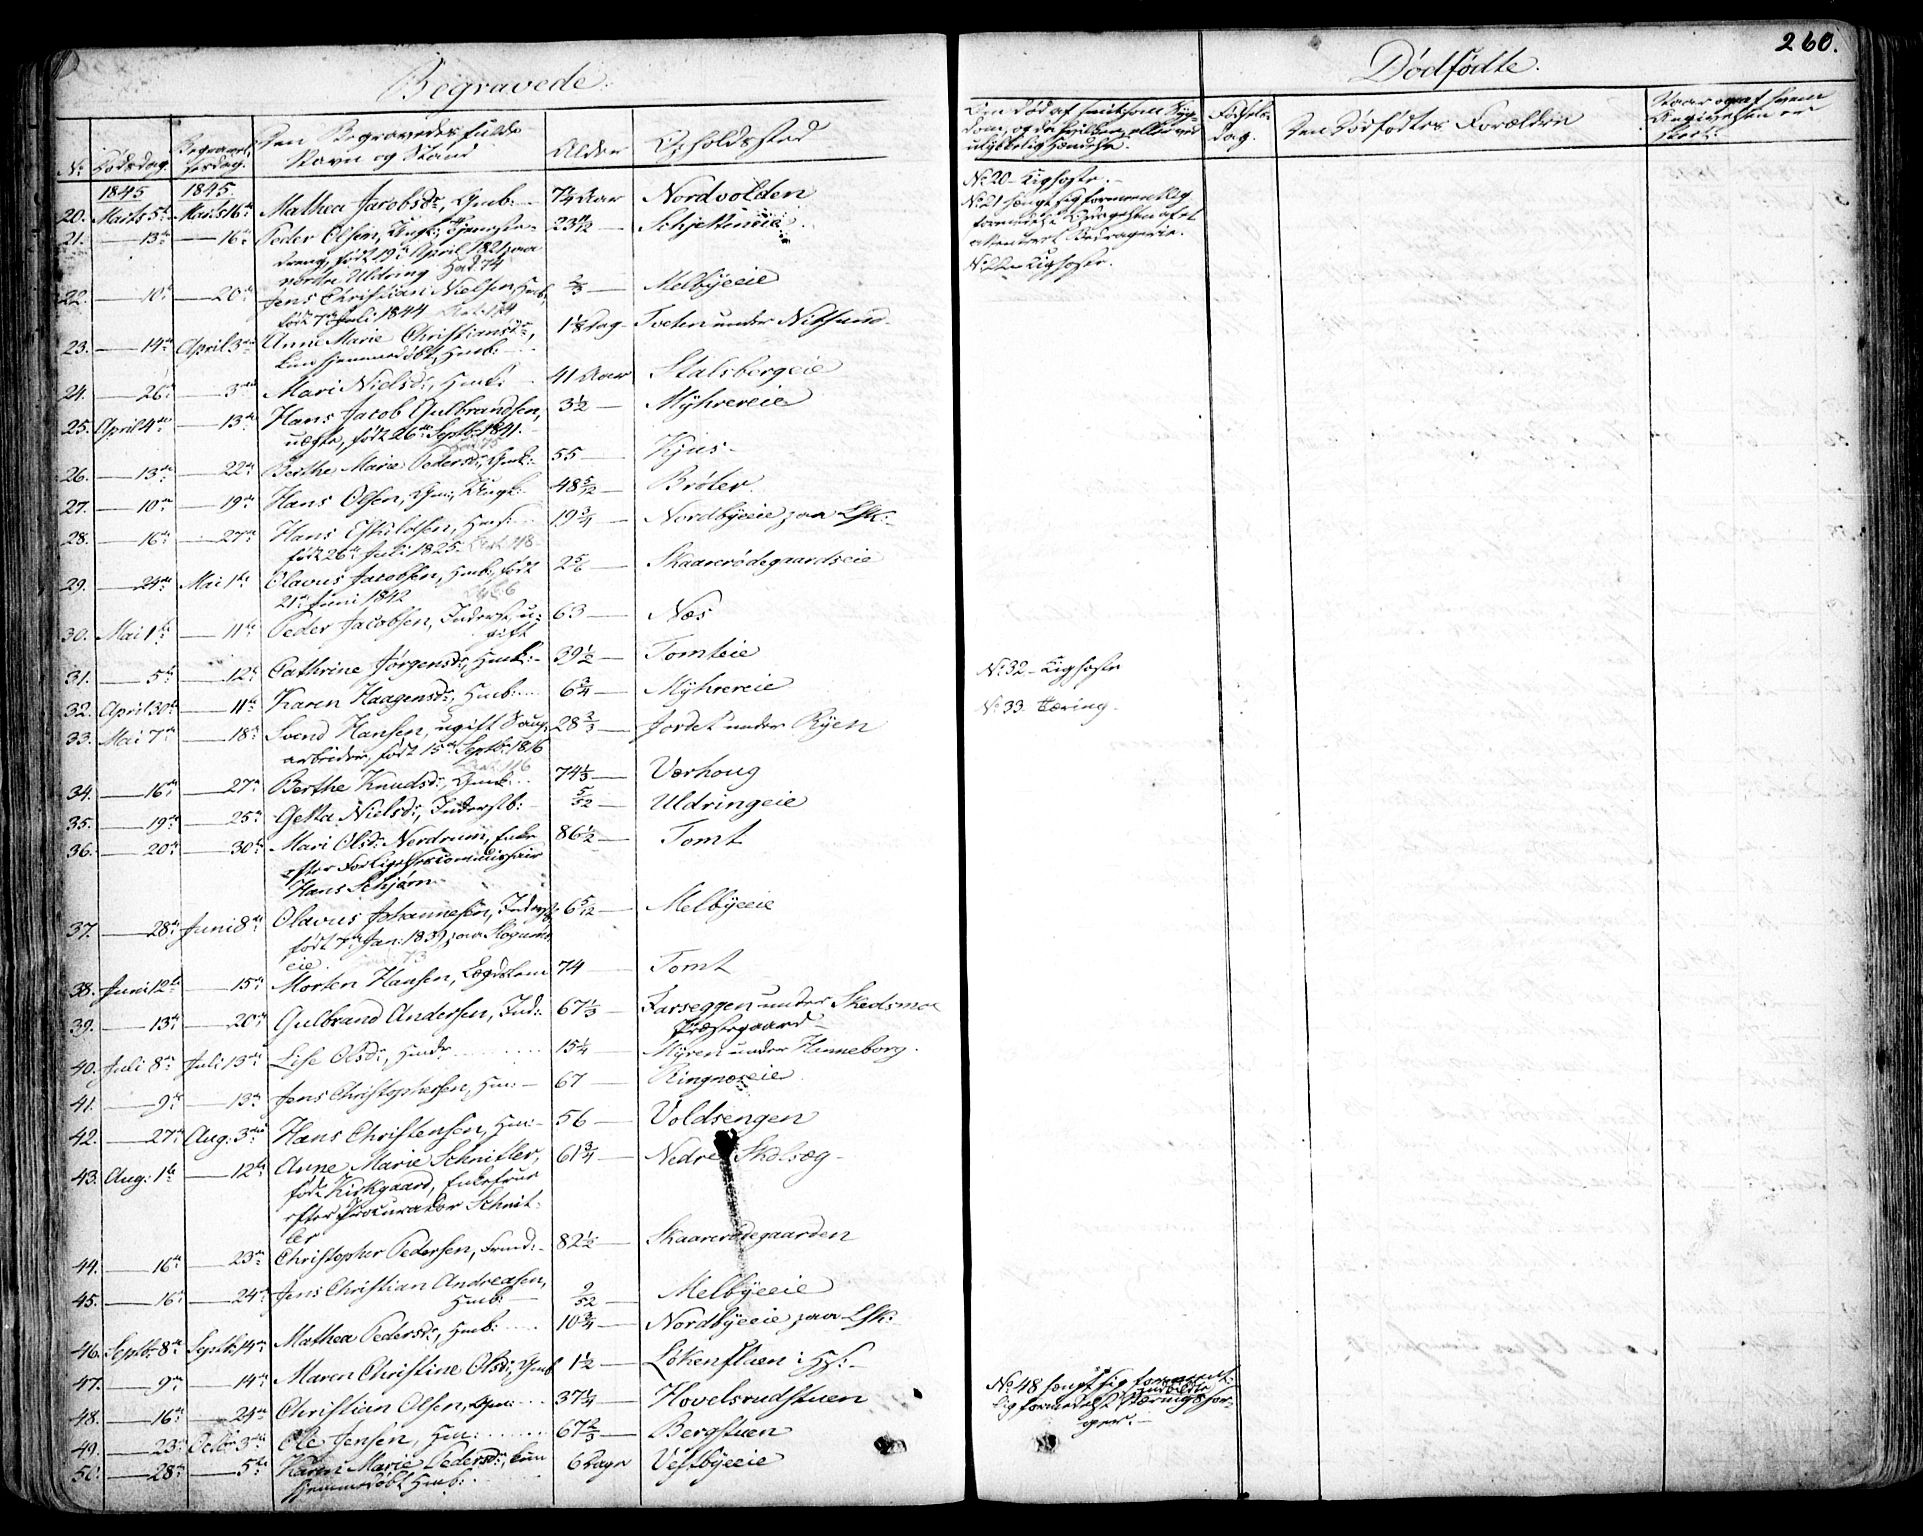 Begravede.
Dødfødte.
260.
No Dødsdag. Begravelsesdag. Den Begravedes fulde Navn og Stand Alder Opholdssted
Fødselsdag. Den Dødfødtes Forældre
1845 1845.
20. Marts 5te Marts 16de Mathea Jacobsdr, Gmb: 74 Aar Nordvolden
21. — 13de — 16de Peder Olsen, Ungk:, Tjeneste-
dreng, født 19de April 1821 paa
nordre Uldring
23 11/12 Schjetteneie
22. — 10de — 20de Jens Christian Nielsen, Hmb,
født 7de Juli 1844
2/3 Melbyeeie
23. — 14de April 3die Anne Marie Christiansdr,
kun hjemmedøbt, Hmb:
1/8 Dag Tveten under Nitsund
24. — 26de — 3die Mari Nielsdr, Hmk: 41 Aar Stalsbergeie
25. April 4de — 13de Hans Jacob Gulbrandsen,
uægte, født 26de Septbr 1841.
3 1/2 — Myhrereie
26. — 13de — 22de Berthe Marie Pedersdr, Gmk: 55 — Kjus
27. — 10de — 19de Hans Olsen, Gm:, Ungk: 48 5/12 — Brøter.
28. — 16de — 27de Hans Eskildsen, Hms:
født 26de Juli 1825
19 3/4 — Nordbyeeie paa LSk:
29. — 24de Mai 1ste Olavus Jacobsen, Hmb:, født
21de Juni 1842
2 5/6 Skaarerødegaardseie
30. Mai 1ste — 11te Peder Jacobsen, Inderst, u-
gift
63 — Næs
31. — 5te — 12te Cathrine Jørgensdr, Hmk: 39 1/2 — Tomteie
32. April 30te — 11te Karen Haagensdr, Hmb: 6 3/4 — Myhrereie
33. Mai 7de — 18de Svend Hansen, ugift Saug-
arbeider, født 15de Septbr 1816
28 2/3 — Jordet under Ryen
34. — 16de — 27de Berthe Knudsdr, Gmk: 74 1/3 — Værhoug
35. — 19de — 25de Getta Nielsdr, Inderstb: 5/52 — Uldringeie
36. — 20de — 30te Mari Olsdr Nordrum, Enke
efter Forligelsescommissair
Hans Schjørn
86 1/2 — Tomt
37. — 28de Juni 8de Olavus Johannesen, Inderstb
født 7de Jan: 1839 paa Skogum-
eie.
6 5/12 — Melbyeeie
38. Juni 12te — 15de Morten Hansen, Lægdslem 74 — Tomt
39. — 13de — 20de Gulbrand Andersen, Ind: 67 1/3 — Larseggen under Skedsmoe
Præstegaard
40. Juli 8de Juli 13de Lise Olsdr, Hmdr 15 1/4 — Myren under Hanneborg.
41. — 9de — 13de Jens Christophersen, Hm: 67 — Ringnæseie
42. — 27de Aug: 3die Hans Christensen, Hm: 56 — Voldsengen
43. Aug: 1ste — 12te Anne Marie Schnitler,
født Kirkgaard, Enkefrue
efter Procurator Schnit-
ler
61 3/4 — Nedre Skolsæg
44. — 16de — 23de Christopher Pedersen, Frmd: 82 1/2 — Skaarerødegaarden
45. — 16de — 24de Jens Christian Andreasen,
Hmb:
9/52 — Melbyeeie
46. Septb: 8de Septb: 14de Mathea Pedersdr, Hmb: 10 3/4 — Nordbyeeie paa LSk:
47. — 9de — 14de Maren Christine Olsdr, Gmb 1 1/2 — Løkenstuen
48. — 16de — 24de Christian Olsen, Gm: 37 1/4 — Hovelsrudstuen
49. — 23de Octbr 3die Ole Jensen, Hm: 67 2/3 — Bergstuen
50. — 28de — 5te Karen Marie Pedersdr, kun
hjemmedøbt Hmb:
6 Dage Vestbyeeie
No 20 – Kighoste.
No 21 hængt sig
No 22 – Kighoste.
No 32 – Kighoste
No 33. Tæring.
No 48 hængt sig